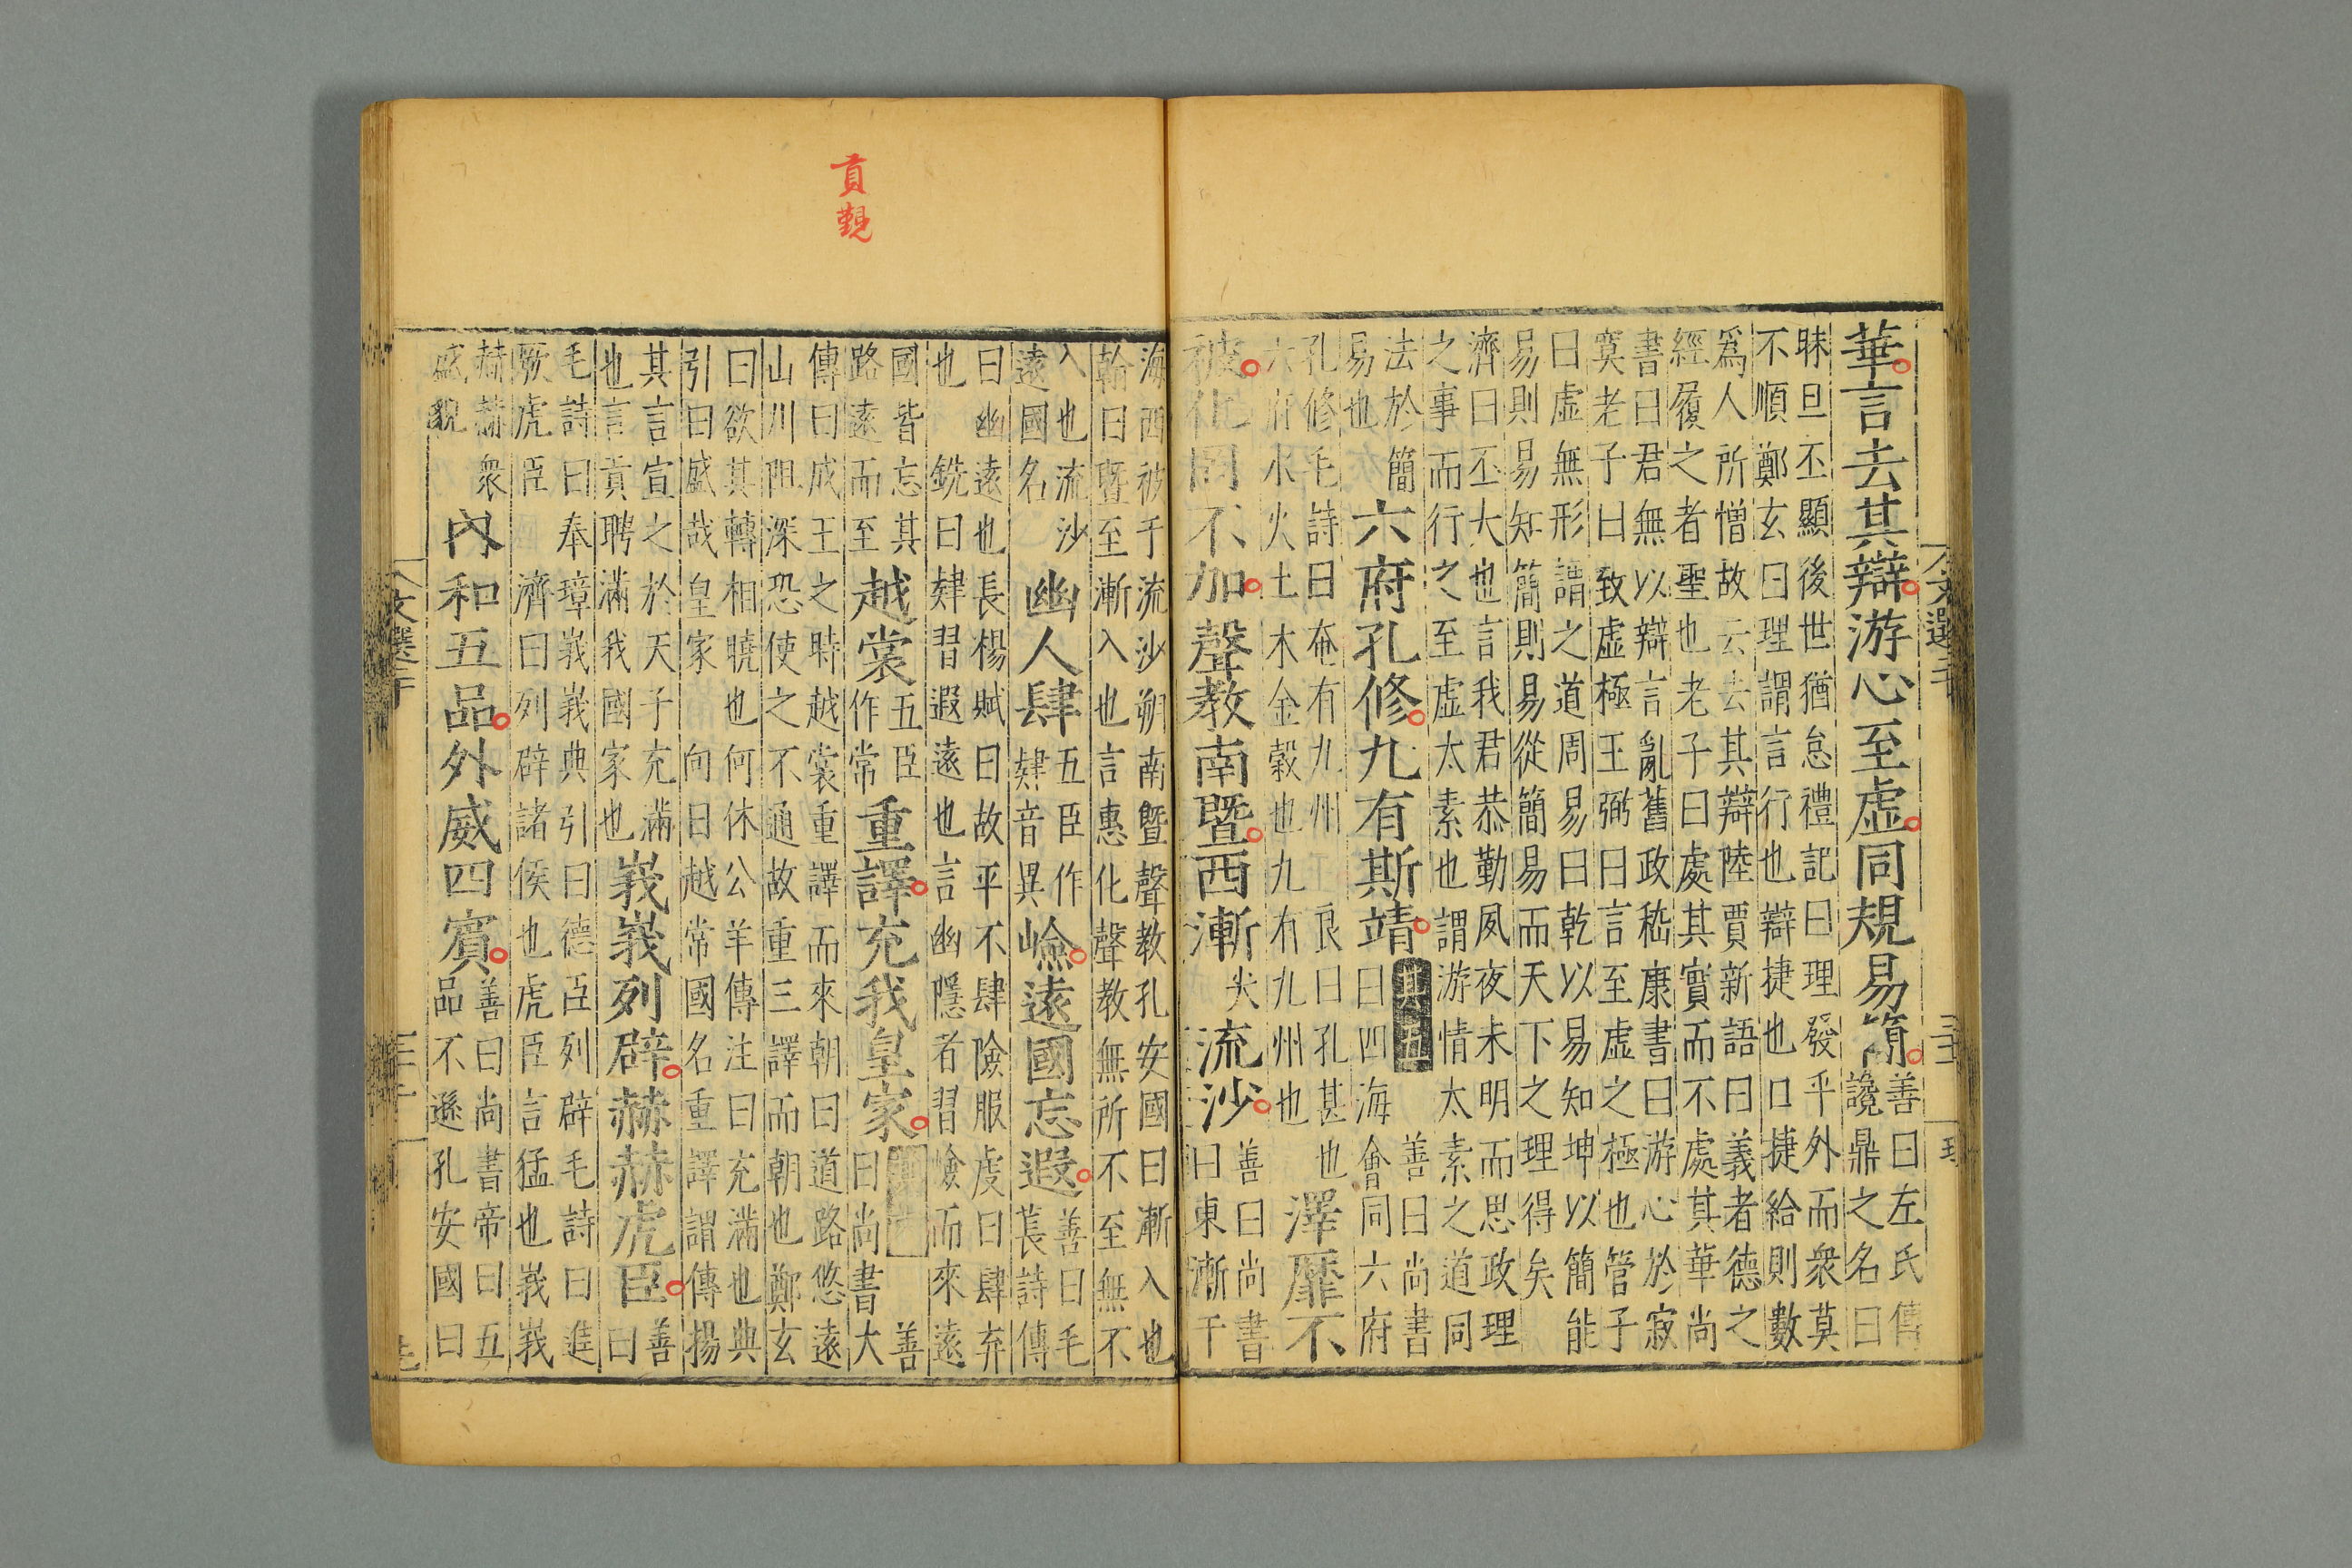 華言去其辯游心至虛同規易簡善曰左氏傳讒鼎之名曰
昧旦丕顯後世猶怠禮記曰理發乎外而衆莫
不順鄭玄曰理謂言行也辯捷也口捷給則數
爲人所憎故云去其辯陸賈新語曰義者德之
經履之者聖也老子曰處其實而不處其華尚
書曰君無以辯言亂舊政嵇康書曰游心於寂
寞老子曰致虛極王弼曰言至虛之極也管子
曰虛無形謂之道周易曰乾以易知坤以簡能
易則易知簡則易從簡易而天下之理得矣
濟曰丕大也言我君恭勤夙夜未明而思政理
之事而行之至虛太素也謂游情太素之道同
法於簡易也六府孔修九有斯靖其五善曰尚書曰四海會同六府
孔修毛詩曰奄有九州良曰孔甚也六府水火土木金穀也九有九州也澤靡不
被化罔不加聲教南暨西漸尖流沙善曰尚書曰東漸于
貢覲
海西被于流沙朔南曁聲教孔安國曰漸入也
翰曰曁至漸入也言惠化聲教無所不至無不
入也流沙遠國名幽人肆五臣作肄音異嶮遠國忘遐善曰毛萇詩傳
曰幽遠也長楊賦曰故平不肆險服虔曰肆弃
也銑曰肄習遐遠也言幽隱者習嶮而來遠
國皆忘其路遠而至越裳五臣作常重譯充我皇家善曰尚書大
傳曰成王之時越裳重譯而來朝曰道路悠遠
山川阻深恐使之不通故重三譯而朝也鄭玄
曰欲其轉相曉也何休公羊傳注曰充滿也典
引曰盛哉皇家向曰越常國名重譯謂傳揚
其言宣之於天子充滿也言貢聘滿我國家也峩峩列辟赫赫虎臣善曰
毛詩曰奉璋峩峩典引曰德臣列辟毛詩曰進
厥虎臣濟曰列辟諸侯也虎臣言猛也峩峩
赫赫衆盛貌內和五品外威四賓善曰尚書帝曰五品不遜孔安國曰